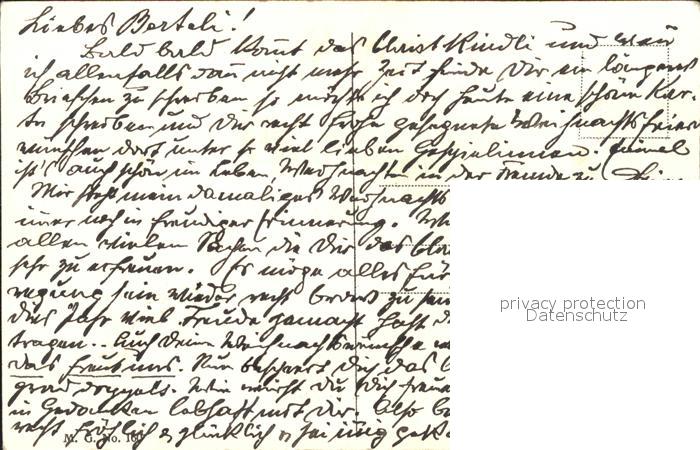 Liebes Berteli!
Bald bald kommt das Christkindli und wenn
ich allenfalls dann nicht mehr Zeit finde Dir ein längeres
Briefchen zu schreiben so möchte ich doch heute eine schöne Kar-
te schreiben und Dir recht frohe gesegnete Weihnachtsfeier
wünschen dort unter so viel lieben Gespielinnen. Einmal
ist's auch schön im Leben, Weihnachten in der Fremde zu
Mir steht mein damaliges Weihnachts
immer noch in freudiger Erinnerung.
allen vielen Sachen die Dir das
sehr zu erfreuen. Es möge alles für
regung sein wieder recht brav zu sein
dies Jahr viel Freude gemacht hast
tragen.. Auch Deine Weihnachtswünsche
das freut uns. Nun beschert Dich das
grad doppelt. Wie wirst du Dich freuen
in Gedanken lebhaft mit Dir. Also
recht fröhlich & glücklich & sei innig
M. G. No. 160
privacy protection
Datenschutz